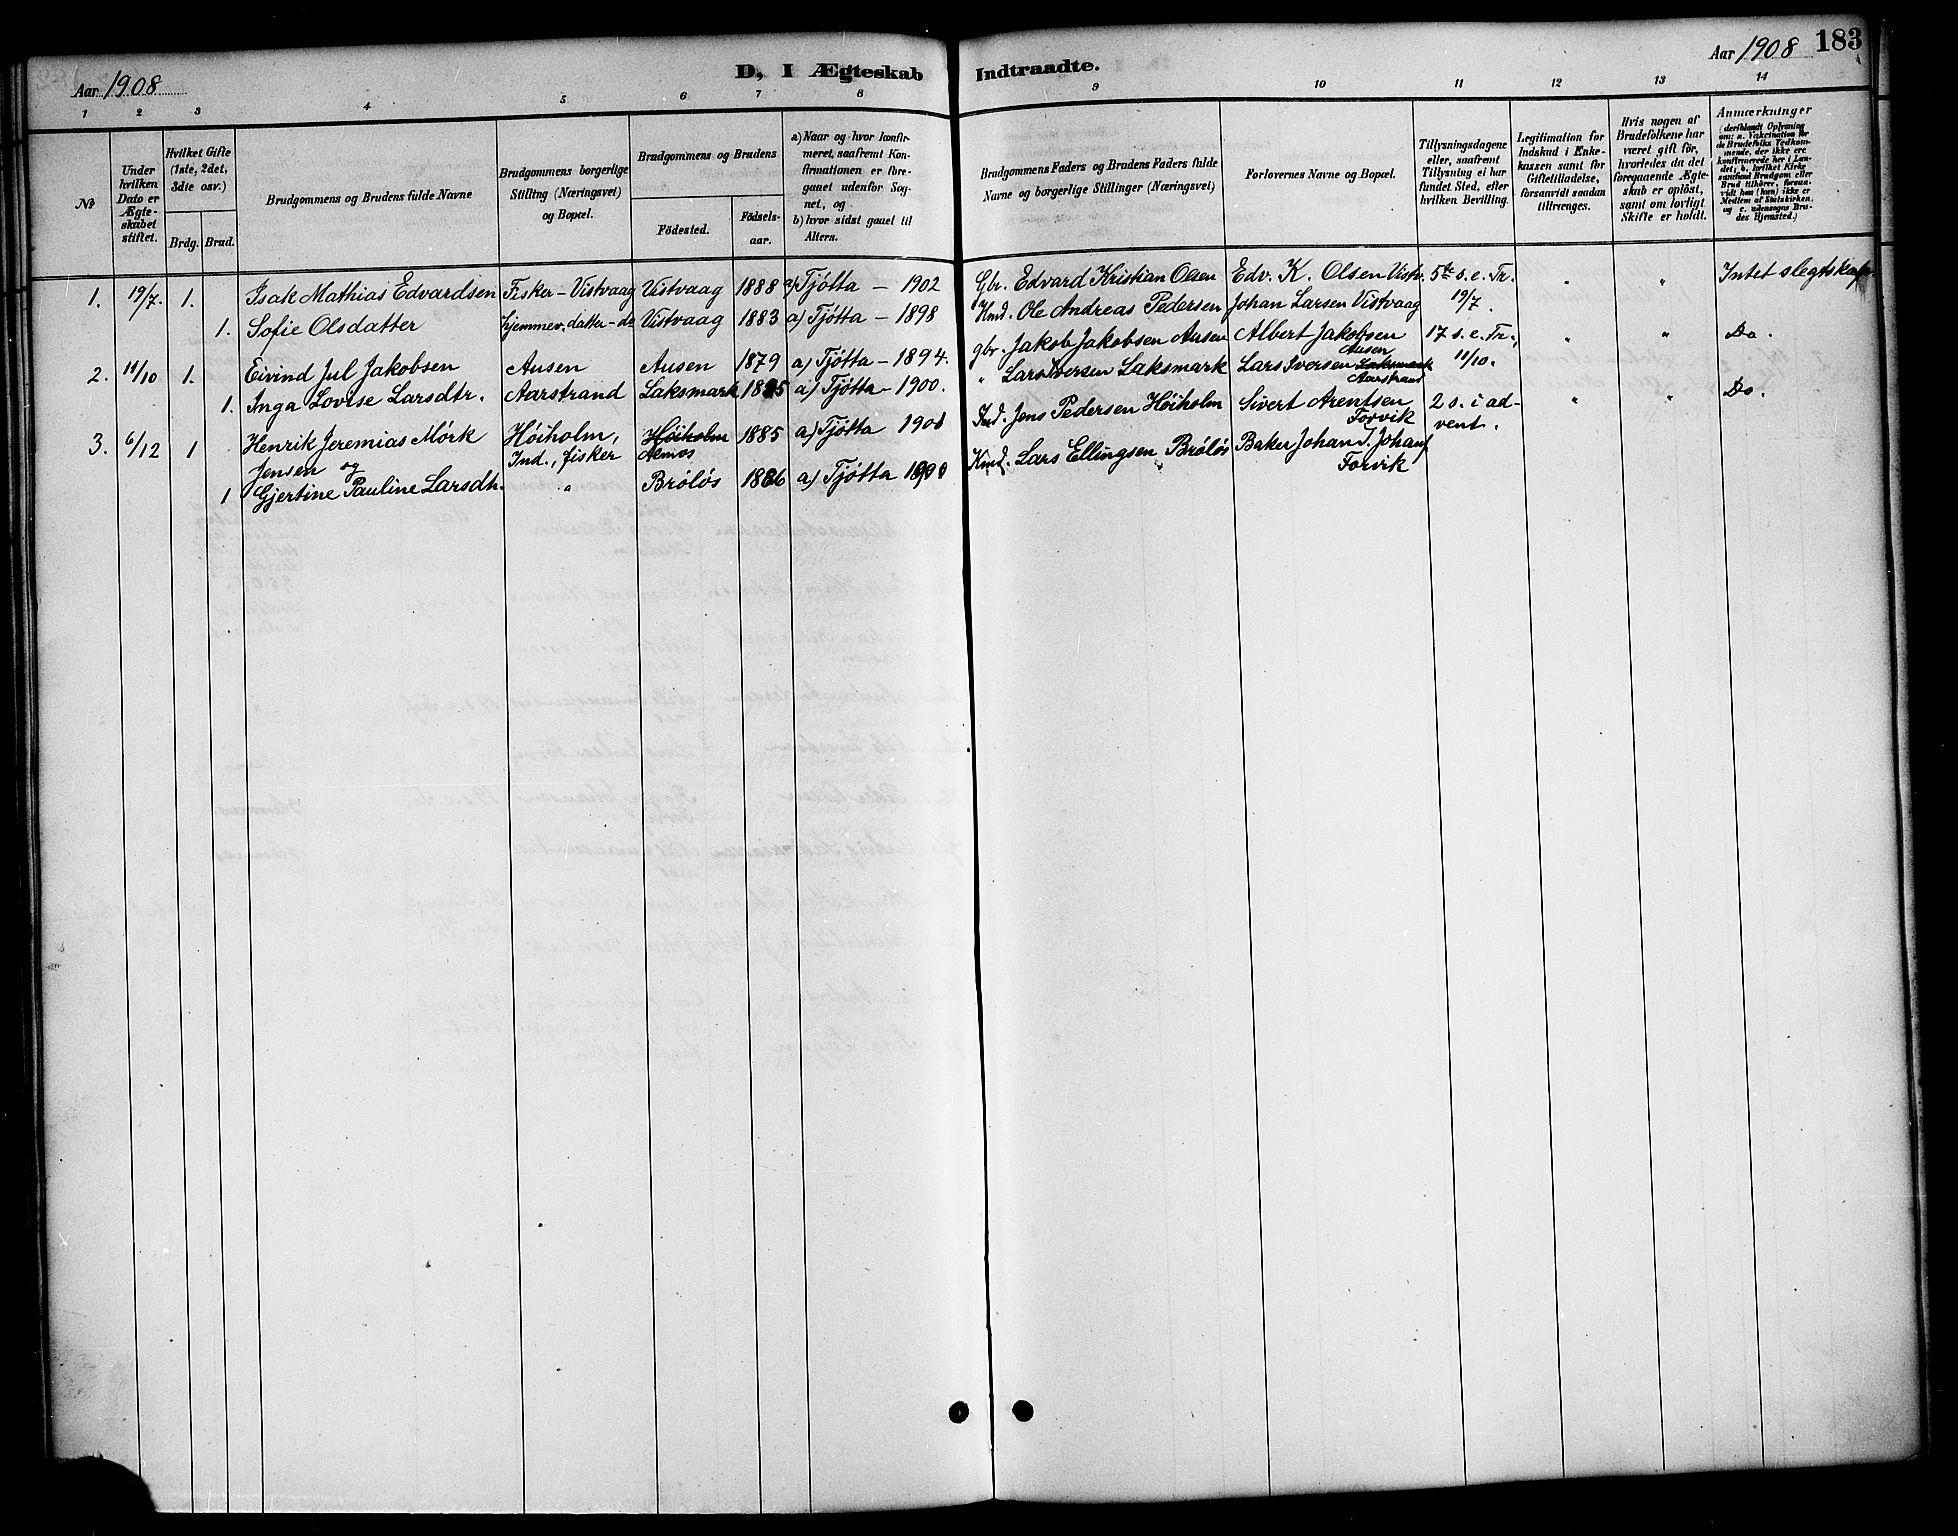 Aar 1908
D, I Ægteskab Indtraadte.
Aar 1908 183
1 2 3 4 5 6 7 8 9 10 11 12 13 14
№
Under hvilken Dato er Ægteskabet stiftet.
Hvilket Gifte (1ste, 2det, 3die osv.)
Brdg. Brud.
Brudgommens og Brudens fulde Navne
Brudgommens borgerlige Stilling (Næringsvei) og Bopæl.
Brudgommens og Brudens
Fødested. Fødselsaar.
a) Naar og hvor konfirmeret, saafremt Konfirmationen er foregaaet udenfor Sognet, og
b) hvor sidst gaaet til Alters.
Brudgommens Faders og Brudens Faders fulde Navne og borgerlige Stillinger (Næringsvei)
Forlovernes Navne og Bopæl.
Tillysningsdagene eller, saafremt Tillysning ei har fundet Sted, efter hvilken Bevilling.
Legitimation for Indskud i Enkekassen samt for Giftetilladelse, forsaavidt saadan tiltrænges.
Hvis nogen af Brudefolkene har været gift før, hvorledes da det foregaaende Ægteskab er opløst, samt om lovligt Skifte er holdt.
Anmærkninger
(deriblandt Oplysning om: a. Vakcination for de Brudefolks Vedkommende, der ikke ere konfirmerede her i Landet; b. hvilket Kirkesamfund Brudgom eller Brud tilhører, forsaavidt han (hun) ikke er Medlem af Statskirken, og c. udensogns Brudes Hjemsted.)
1. 19/7 1. Isak Mathias Edvardsen Fisker - Vistvaag Vistvaag 1888 a) Tjøtta - 1902 Gbr. Edvard Kristian Olsen Edv. K. Olsen Vistv. 5te s. e. Tr. " " Intet slegtskap
1. Sofie Olsdatter hjemmev. datter - do Vistvaag 1883 a) Tjøtta - 1898 Kmd. Ole Andreas Pedersen Johan Larsen Vistvaag 19/7.
2. 11/10 1. Eivind Jul Jakobsen Ausen Ausen 1879 a) Tjøtta - 1894. gbr. Jakob Jakobsen Ausen Albert Jakobsen Ausen 17 s. e. Tr., " " Do.
1. Inga Lovise Larsdtr. Aarstrand Laksmark 1885 a) Tjøtta - 1900. " Lars Iversen Laksmark Lars Iversen Laksmark Aarstrand 11/10.
3. 6/12 1 Henrik Jeremias Mørk Jensen og Høiholm, Ind., fisker Høiholm Almos 1885 a) Tjøtta 1901 Ind. Jens Pedersen Høiholm Sivert Arentsen Forvik 2 s. i advent. " " Do.
1 Gjertine Pauline Larsdtr. " Brøløs 1886 a) Tjøtta Kmd. Lars Ellingsen Brøløs Baker Johan J. Johans Forvik